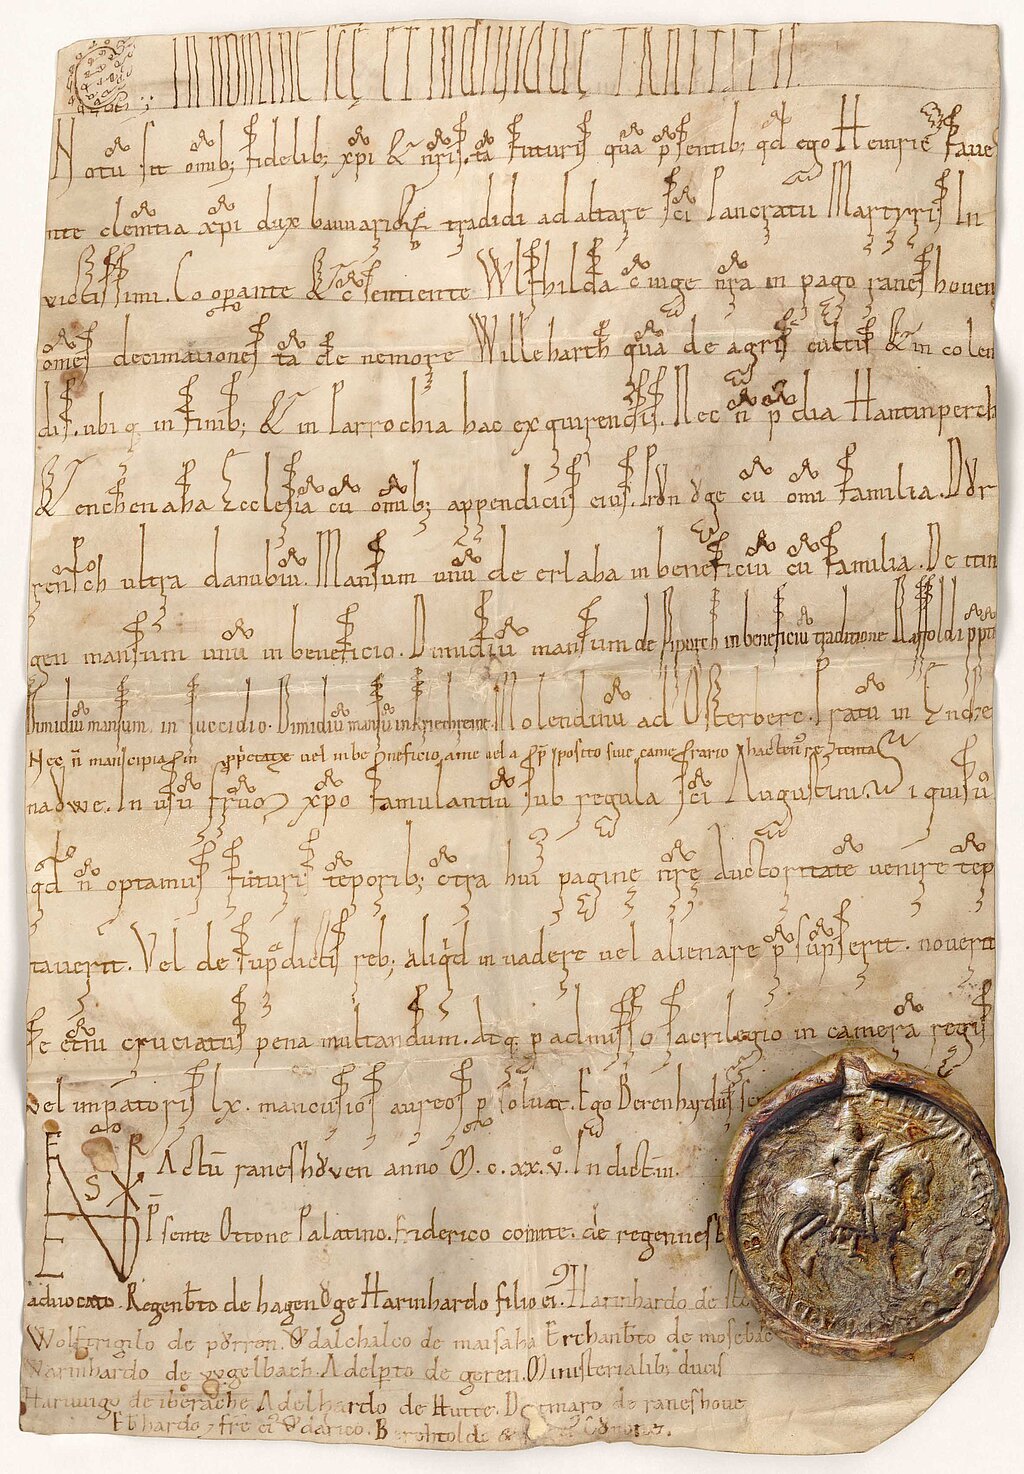 IN NOMINE SCE ET INDIVIDUE TRINITATIS
Notū sit omib; fidelib; xp̄i & nr̄is tā futuris quā p̄sentib; qd ego Heinric fave
nte clemtia xp̄i dux bauuarioȝ tradidi ad altare sc̄i Pancratii Martyris In
victissimi. Cooperante & c̄sentiente Wlfhilda c̄iuge nr̄a in pago raneshouen
om̄es decimationes tā de nemore Willeharth quā de agris cultis & in colen
dis. ubi q; in finib; & in parrochia hac exquirendis. Nec n̄ p̄dia Hantinperch
& enchenaha Ecclesia cū om̄ib; appendiciis eius. Prvn oge cū om̄i familia. Dor
rensoch ultra danubiū. Mansum unū de erlaha in beneficiū cū familia. De ettin
gen mansum unū in beneficio. Dimidiū mansum de Piporch in beneficiū traditione Raffoldi pp̄ti
Dimidiū mansum in suecidio. Dimidiū mansū in kriechreine. Molendinū ad Osterberc. Pratū in Endre
Nec n̄ mancipia in pp̄etate vel in beneficio a me vel a p̄posito sive camerario hacten; retenta
nadwe. In usū fr̄uȝ xp̄o famulantiū sub regula sc̄i Augustini. Siquis ū
qd n̄ optamus futuris tēporib; c̄tra hui pagine nr̄e auctoritatē venire tēp
taverit. Vel de sup̄dictis reb; aliqd invadere vel alienare p̄sūpserit. noverit
se et̄nū cruciatus pena multandum. Atq; p̄ admisso sacrilegio in camerā regis
vel imp̄atoris lx. mancusios aureos p̄soluat. Ego Berenhardus sc
Actū raneshoven anno M. c. xx. v. Indict. III.
P̄sente Ottone Palatino. Friderico comite. de regennesb
advocato. Regenb̄to de hagenoge Harinhardo filio ei. Harinhardo de
Wolftrigilo de porron. Odalchalco de maisaha Erchanb̄to de mosebac
Warinhardo de vvgelbach. Adelp̄to de geren. Ministerialib; ducis
Hartuuigo de iberache Adelhardo de Hutte. Dietmaro de raneshove
Eb̄hardo, fr̄e ei Odarico. Berohtolde &